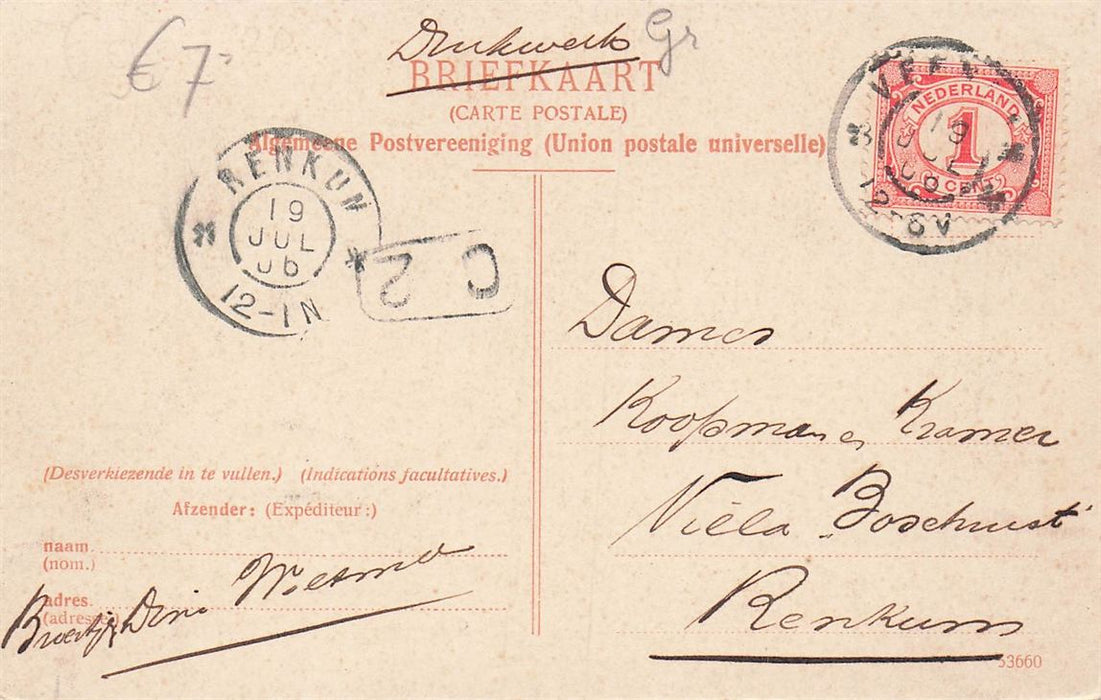 € 7-
Drukwerk Gr
BRIEFKAART
(CARTE POSTALE)
Algemeene Postvereeniging (Union postale universelle)
NEDERLAND
1
CENT
VEEN
19
JUL
06
12-
RENKUM
19
JUL
06
12-1N
C 2
Dames
Koopman en Kramer
Villa Boschlust
Renkum
(Desverkiezende in te vullen.) (Indications facultatives.)
Afzender: (Expéditeur:)
naam.
(nom.)
adres.
(adresse.)
53660